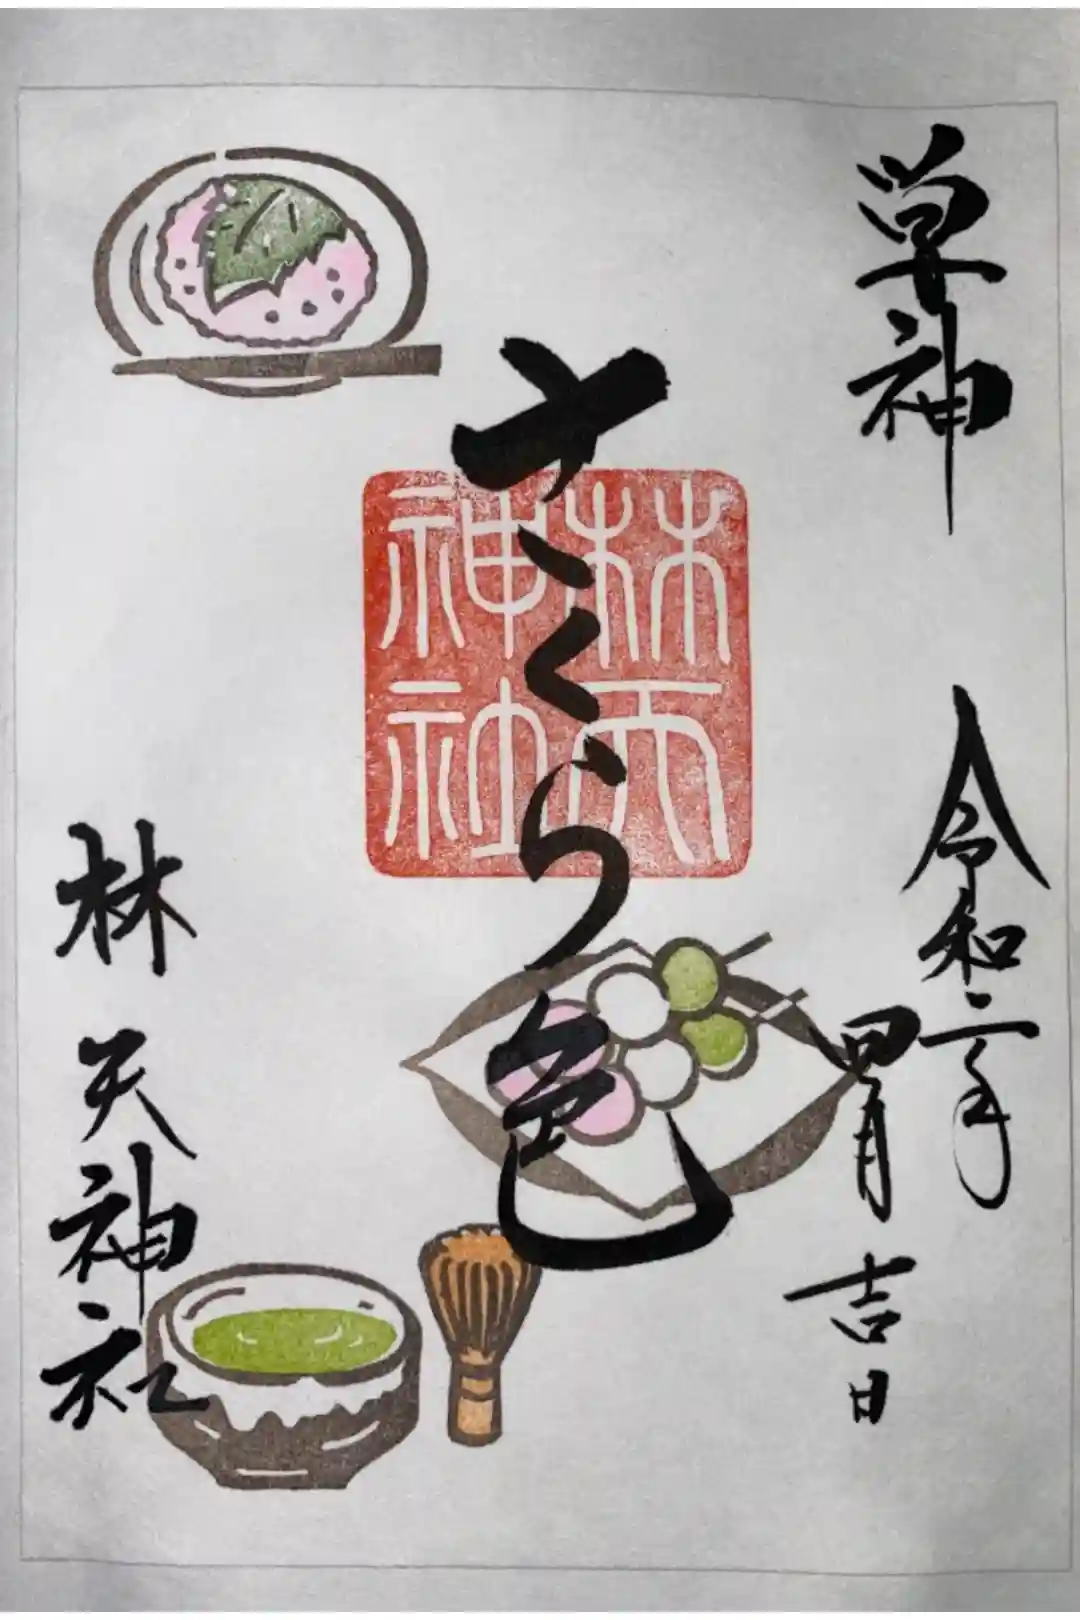 学神
令和二年
四月吉日
さくら色
林天神社
林天神社